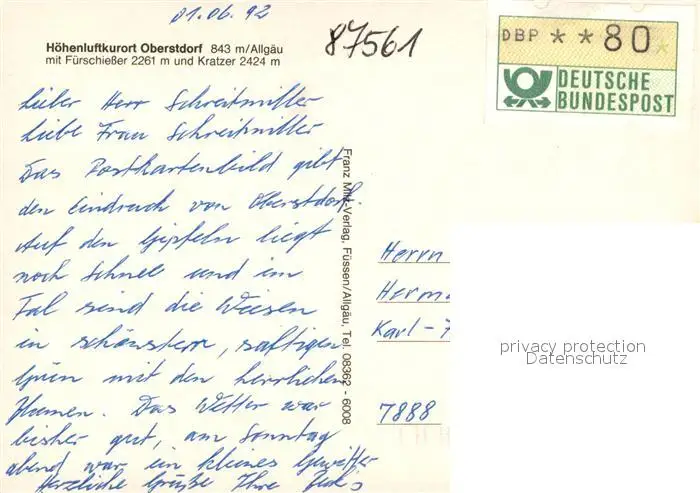 01.06.92
87561
DBP * * 80
DEUTSCHE
BUNDESPOST
Höhenluftkurort Oberstdorf 843 m/Allgäu
mit Fürschießer 2261 m und Kratzer 2424 m
Lieber Herr Schreitmiller
Liebe Frau Schreitmiller
Das Postkartenbild gibt
den Eindruck von Oberstdorf.
Auf den Gipfeln liegt
noch Schnee und im
Tal sind die Wiesen
in schönstem, saftigen
Grün mit den herrlichen
Blumen. Das Wetter war
bisher gut, am Sonntag
abend war ein kleines Gewitter
Herzliche Grüße Ihre
Franz Milz-Verlag, Füssen/Allgäu, Tel. 08362 - 6008
Herrn
Herma
Karl-
7888
privacy protection
Datenschutz